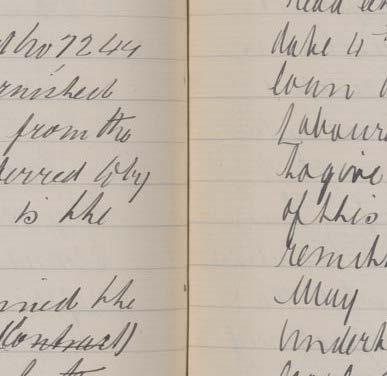 No 7244
rnished
from the
ferred
is the
ined the
(Contract)
date 4
loan
Labour
To give
of this
remitt
May
Undert